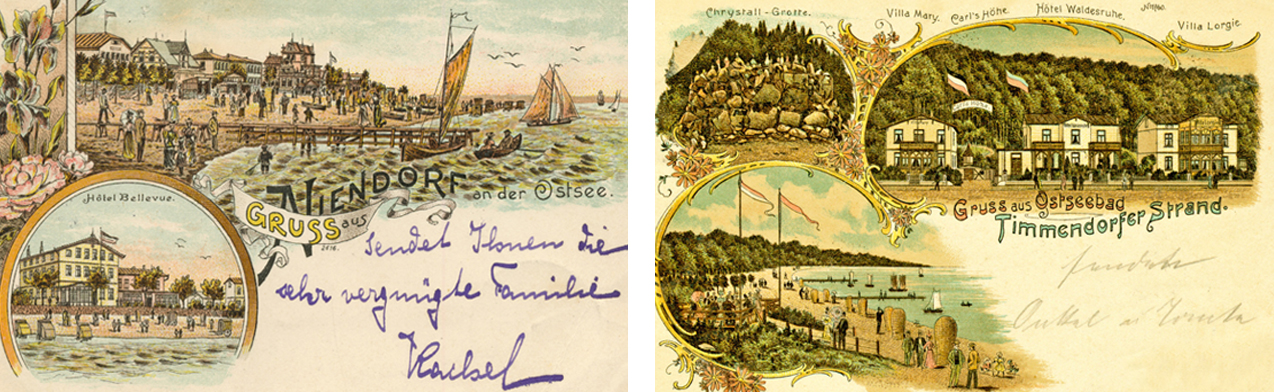 Hôtel Bellevue.
NIENDORF an der Ostsee.
GRUSS aus
sendet Ihnen die
sehr vergnügte Familie
Chrystall-Grotte.
Villa Mary.
Carl's Höhe.
Hôtel Waldesruhe.
Villa Lorgie.
Gruss aus Ostseebad
Timmendorfer Strand.
sendet
Onkel u Tante